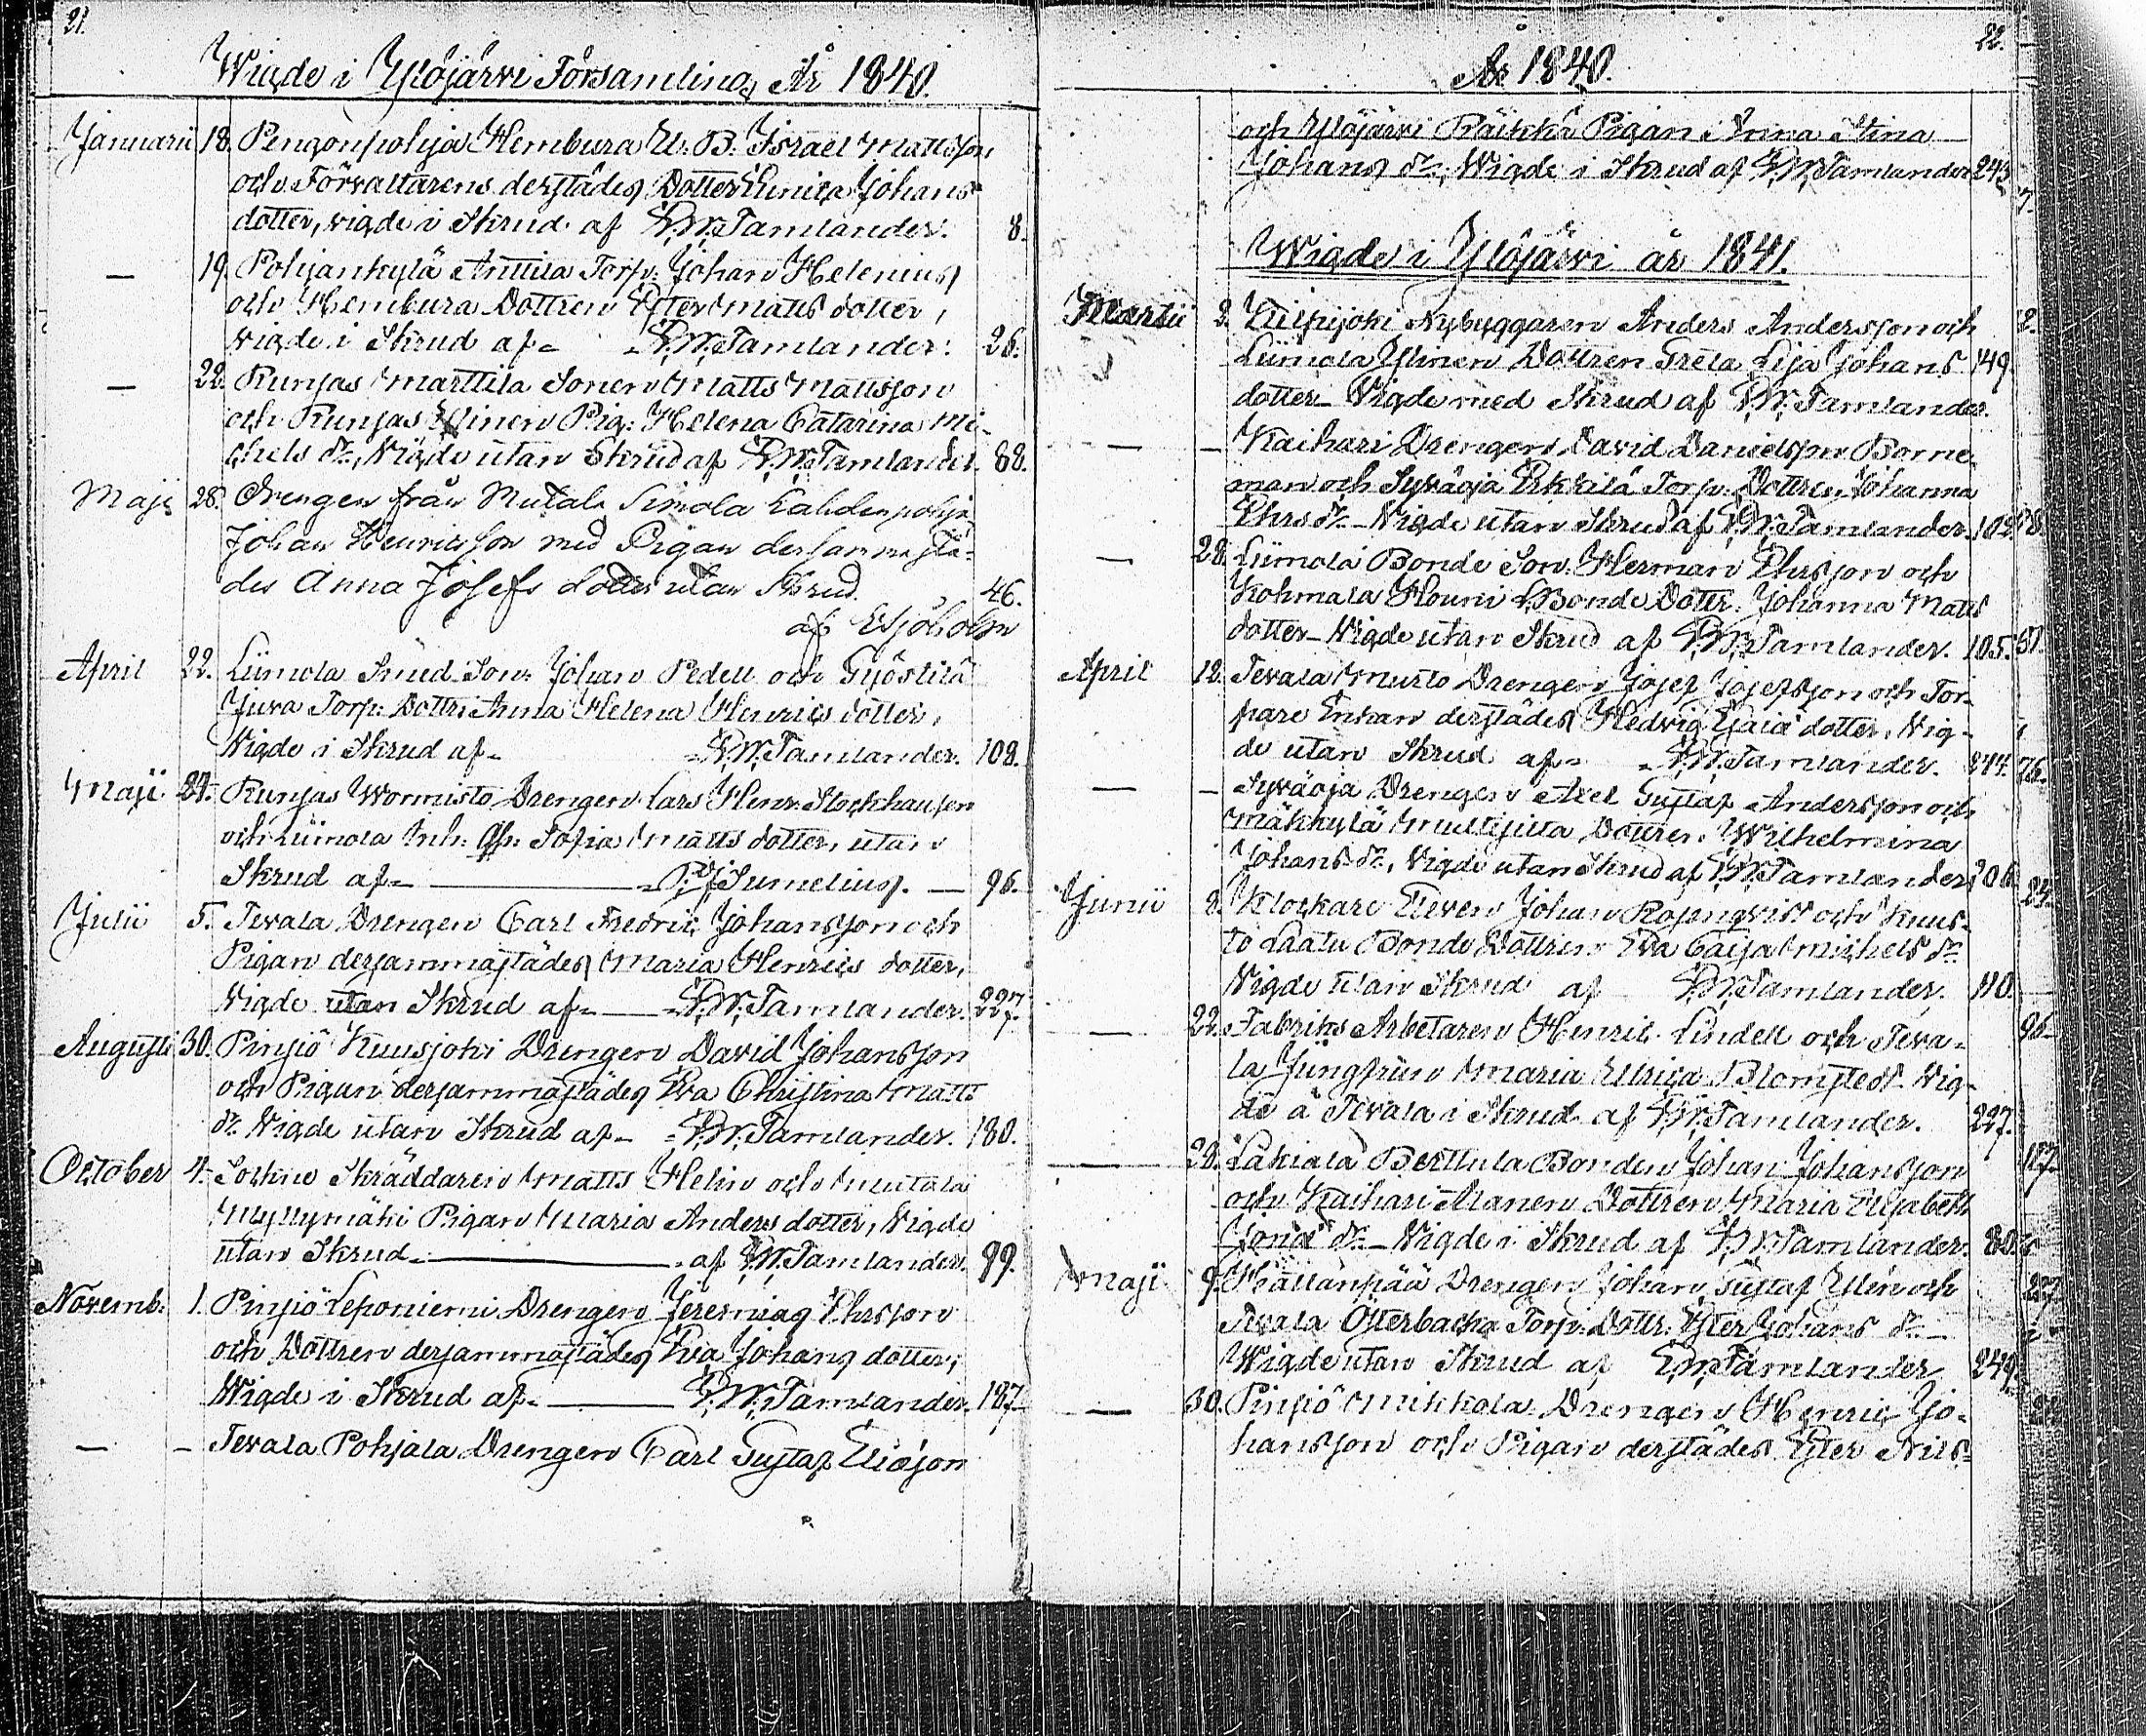 21.
Wigde i Ylöjärvi Församling År 1840.
Januarii 18. Pengonpohja Hembura U. B. Israel Mattsson
och Förvaltarens derstädes Dotter Eunica Johans
dotter, vigde i Skrud af P. W. Tamlander. 8.
— 19. Pohjankylä Anttila Torp. Johan Helenius
och Hembura Dottren Ester Matts dotter,
vigde i Skrud af P. W. Tamlander. 26.
— 22. Runsas Marttila Sonen Matts Mattsson
och Runsas Ylinen Pig. Helena Catarina Mi-
chels dr, Vigde utan Skrud af P. W. Tamlander. 88.
Maji 28. Drengen från Mutala Simola Lahdenpohja
Johan Henricsson med Pigan dersammastä-
des Anna Josefs dotter utan Skrud. 46.
af E Sjöholm
April 22. Liimola Smed Son. Johan Pedell och Työstilä
Juva Torp. Dottr. Anna Helena Henrics dotter,
Vigde i Skrud af P. W. Tamlander. 108.
Maji 24. Runsas Wormisto Drengen Lars Henr. Stockhausen
och Liimola Inh. Sofia Matts dotter, utan
Skrud af — Sumelius. — 96.
Julii 5. Tevala Drengen Carl Fredric Johansson och
Pigan dersammastädes Maria Henrics dotter,
Vigde utan Skrud af — P. W. Tamlander. 227.
Augusti 30. Pinsiö Kuusjoki Drengen David Johansson
och Pigan dersammastädes Eva Christina Matts
dr. Vigde utan Skrud af P. W. Tamlander. 180.
October 4. Sockne Skräddaren Matts Helin och Mutala
Myllymäki Pigan Maria Anders dotter, Vigde
utan Skrud — af P. W. Tamlander. 99.
Novemb. 1. Pinsiö Leponiemi Drengen Jeremias Ehrsson
och Dottren dersammastädes Eva Johans dotter,
Vigde i Skrud af — P. W. Tamlander. 187.
— - Tevala Pohjala Drengen Carl Gustaf Eliasson
22.
År 1840.
och Ylöjärvi Räikkä Pigan Anna Stina
Johans dr. Wigde i Skrud af P. W. Tamlander 243.
7.
Wigde i Ylöjärvi år 1841.
Martii 2. Kilpijoki Nybyggaren Anders Andersson och 12.
Liimola Ylinen Dottren Greta Lisa Johans 149.
dotter Vigde med Skrud af P. W. Tamlander.
— - Kaihari Drengen David Danielsson Borne-
man och Syväoja Erkkilä Torp. Dottren Johanna
Ehrs dr. Vigde utan Skrud af P. W. Tamlander. 102. 78.
— 28. Liimola Bonde Son. Herman Ehrsson och
Kohmala Klouni Bonde Dottr. Johanna Matts
dotter Vigde utan Skrud af P. W. Tamlander. 105. 51.
April 12. Tevala Murto Drengen Josef Josefsson och Tor-
pare Enkan derstädes Hedvig Esaiæ dotter, Vig-
de utan Skrud af P. W. Tamlander. 244. 76.
— - Syväoja Drengen Axel Gustaf Andersson och
Mäkkylä Multisilta Dottren Wilhelmina
Johans dr., Vigde utan Skrud af P. W. Tamlander 206.
Junii 8. Klockare Eleven Johan Rosenqvist och Kuus- 24.
to Laatu Bonde Dottren Eva Caisa Michels dr.
Vigde utan Skrud af P. W. Tamlander. 110.
— 22. Fabriks Arbetaren Henric Lindell och Teva- 96.
la Jungfrun Maria Ulrica Blomstedt. Vig-
de å Tevala i Skrud af P. W. Tamlander. 227.
— 28. Lakiala Berttula Bonden Johan Johansson 187.
och Kaihari Alanen Dottren Maria Elisabeth
Jonæ dr. Vigde i Skrud af P. W. Tamlander. 80.
Maji 9. Hällänpää Drengen Johan Gustaf Ylin och 227.
Tevala Österbacka Torp. Dottr. Ester Johans dr.
Wigde utan Skrud af P. W. Tamlander 249.
— 30. Pinsiö Mikkola Drengen Henric Jo-
hansson och Pigan derstädes Ester Nils-